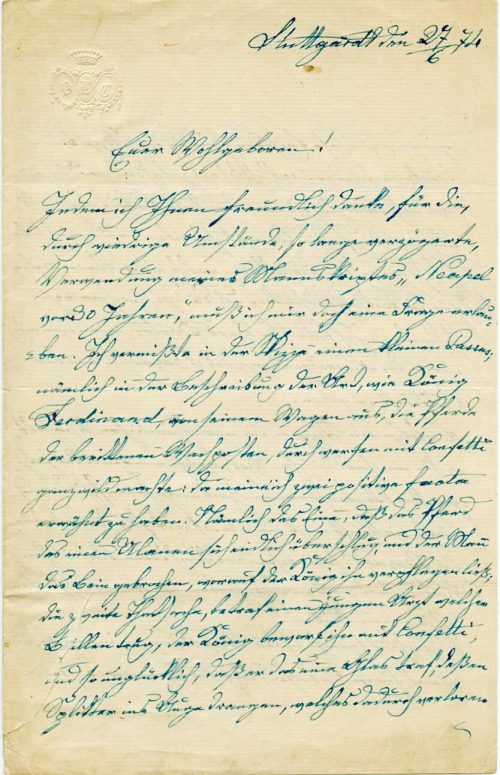 Stuttgardt den 27/6 74
Euer Wohlgeboren!
Indem ich Ihnen freundlich danke, für die,
durch widrige Umstände, so lange verzögerte,
Verwendung meines Manuskriptes „Neapel
vor 30 Jahren", muß ich mir doch eine Frage erlau-
ben. Ich vermißte in der Skizze einen kleinen Passus,
nämlich in der Beschreibung der Art, wie König
Ferdinand, von seinem Wagen aus, die Pferde
der berittenen Wachposten, durch werfen mit Confetti
ganz wild machte; da meine ich zwei positive Facta
erwähnt zu haben. Nämlich das Eine, daß das Pferd
des einen Ulanen sich endlich überschlug, und der Mann
das Bein gebrochen, worauf der König ihn verpflegen ließ,
die zweite Thatsache, betraf einen jungen Arzt welcher
Brillen trug, der König bewarf ihn mit Confetti,
und so unglücklich, daß er das eine Glas traf, deßen
Splitter ins Auge drangen, welches dadurch verloren